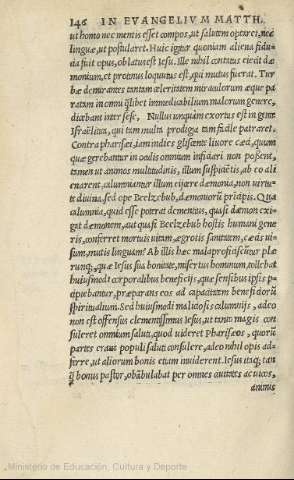 146 IN EVANGELIVM MATTH.
ut homo nec mentis esset compos, ut salutem optaret, nec
linguæ, ut postularet. Huic igitur quoniam aliena fidu-
cia fuit opus, oblatus est Iesu. Ille nihil cunctatus eiecit dæ
monium, et protinus loquutus est, qui mutus fuerat. Tur
bæ demirantes tantam celeritatem miraculorum æque pa
ratam in omni quãlibet immedicabilium malorum genere,
dicebant inter sese, Nullus unquam exortus est in gente
Israëlitica, qui tam multa prodigia tam facile patraret.
Contra pharisæi, iam indies gliscente livore cæci, quum
quæ gerebantur in oculis omnium inficiari non possent,
tamen ut animos multitudinis, illum suspicientis, ab eo ali
enarent, calumniantur illum eijcere dæmonia, non virtu-
te divina, sed ope Beelzebub, dæmonorũ principis. Quæ
calumnia, quid esse poterat dementius, quasi dæmon exi-
gat dæmonem, aut quasi Beelzebub hostis humani gene
ris, conferret mortuis vitam, ægrotis sanitatem, cæcis vi-
sum, mutis linguam? Ab illis hæc malæ proficiscũtur ple
runque, quæ Iesus sua bonitate, misertus hominum, tollebat
huiusmodi corporalibus beneficijs, quæ sensibus ipsis per
cipiebantur, præparans eos ad capacitatem beneficiorũ
spiritualium. Sed huiusmodi malidicis calumnijs, adeo
non est offensus clementissimus Iesus, ut tanto magis con
suleret omnium saluti, quod videret Pharisæos, quorũ
partes erant populi saluti consulere, adeo nihil opis ad-
ferre, ut aliorum bonis etiam inviderent. Iesus itaq; tanq̃
bonus pastor, obãbulabat per omnes civitates ac vicos,
animis
Ministerio de Educación, Cultura y Deporte